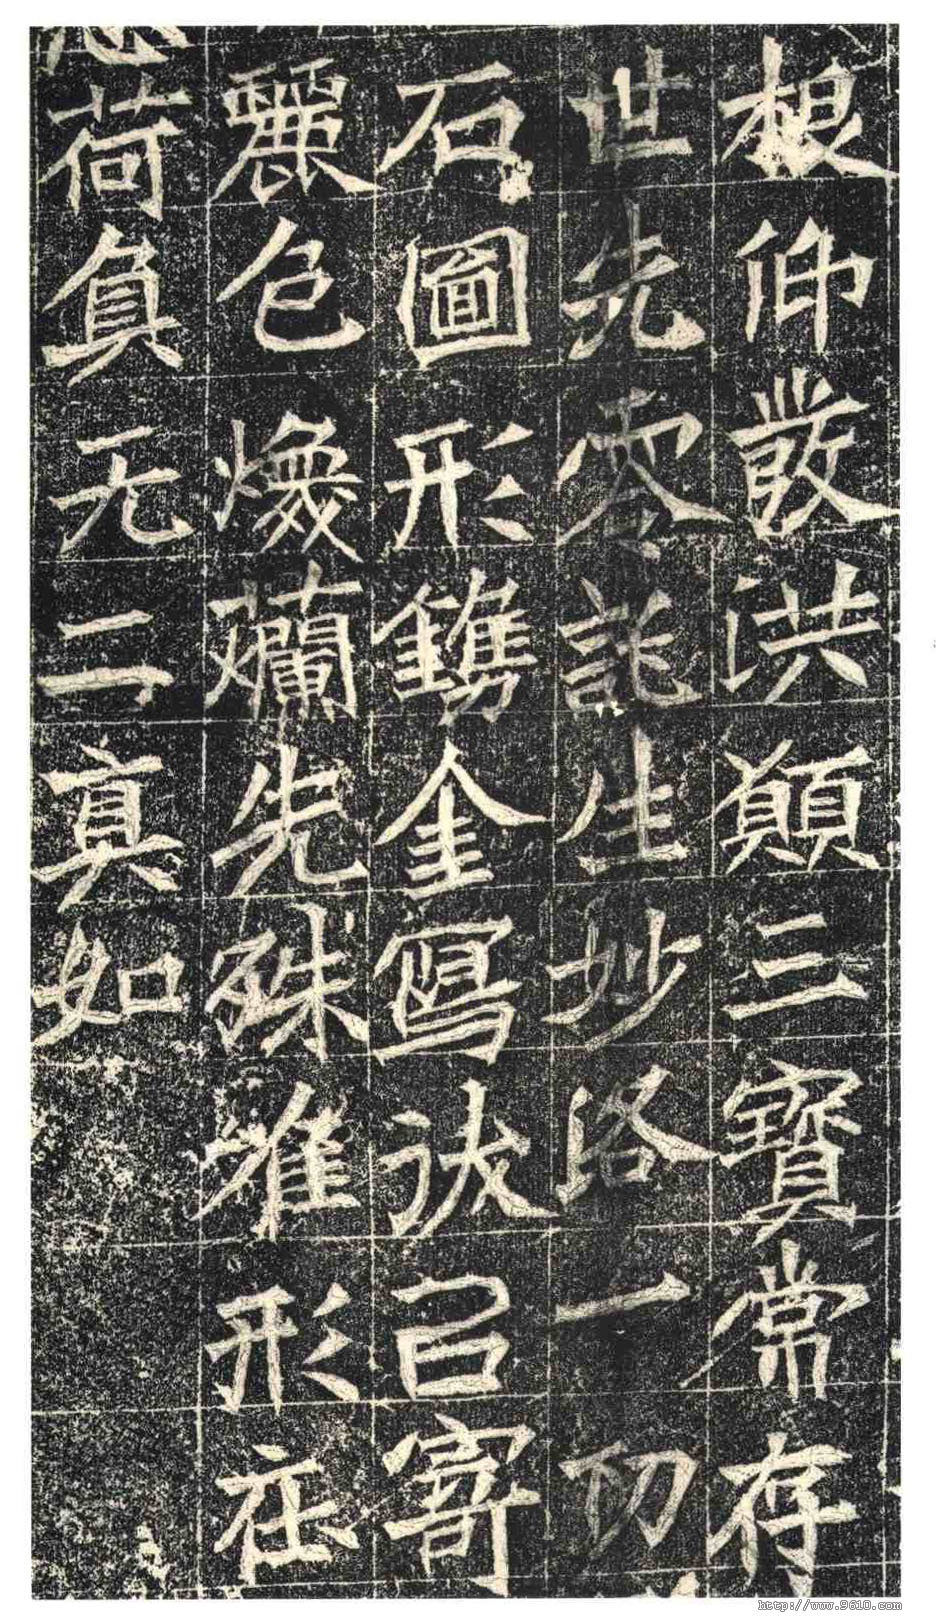 根仰發洪願三寶常存
世先靈託生妙洛一切
石圖形鐫金寫狀召寄
麗色煥爛先殊唯形在
荷負无二真如
http://www.9610.com